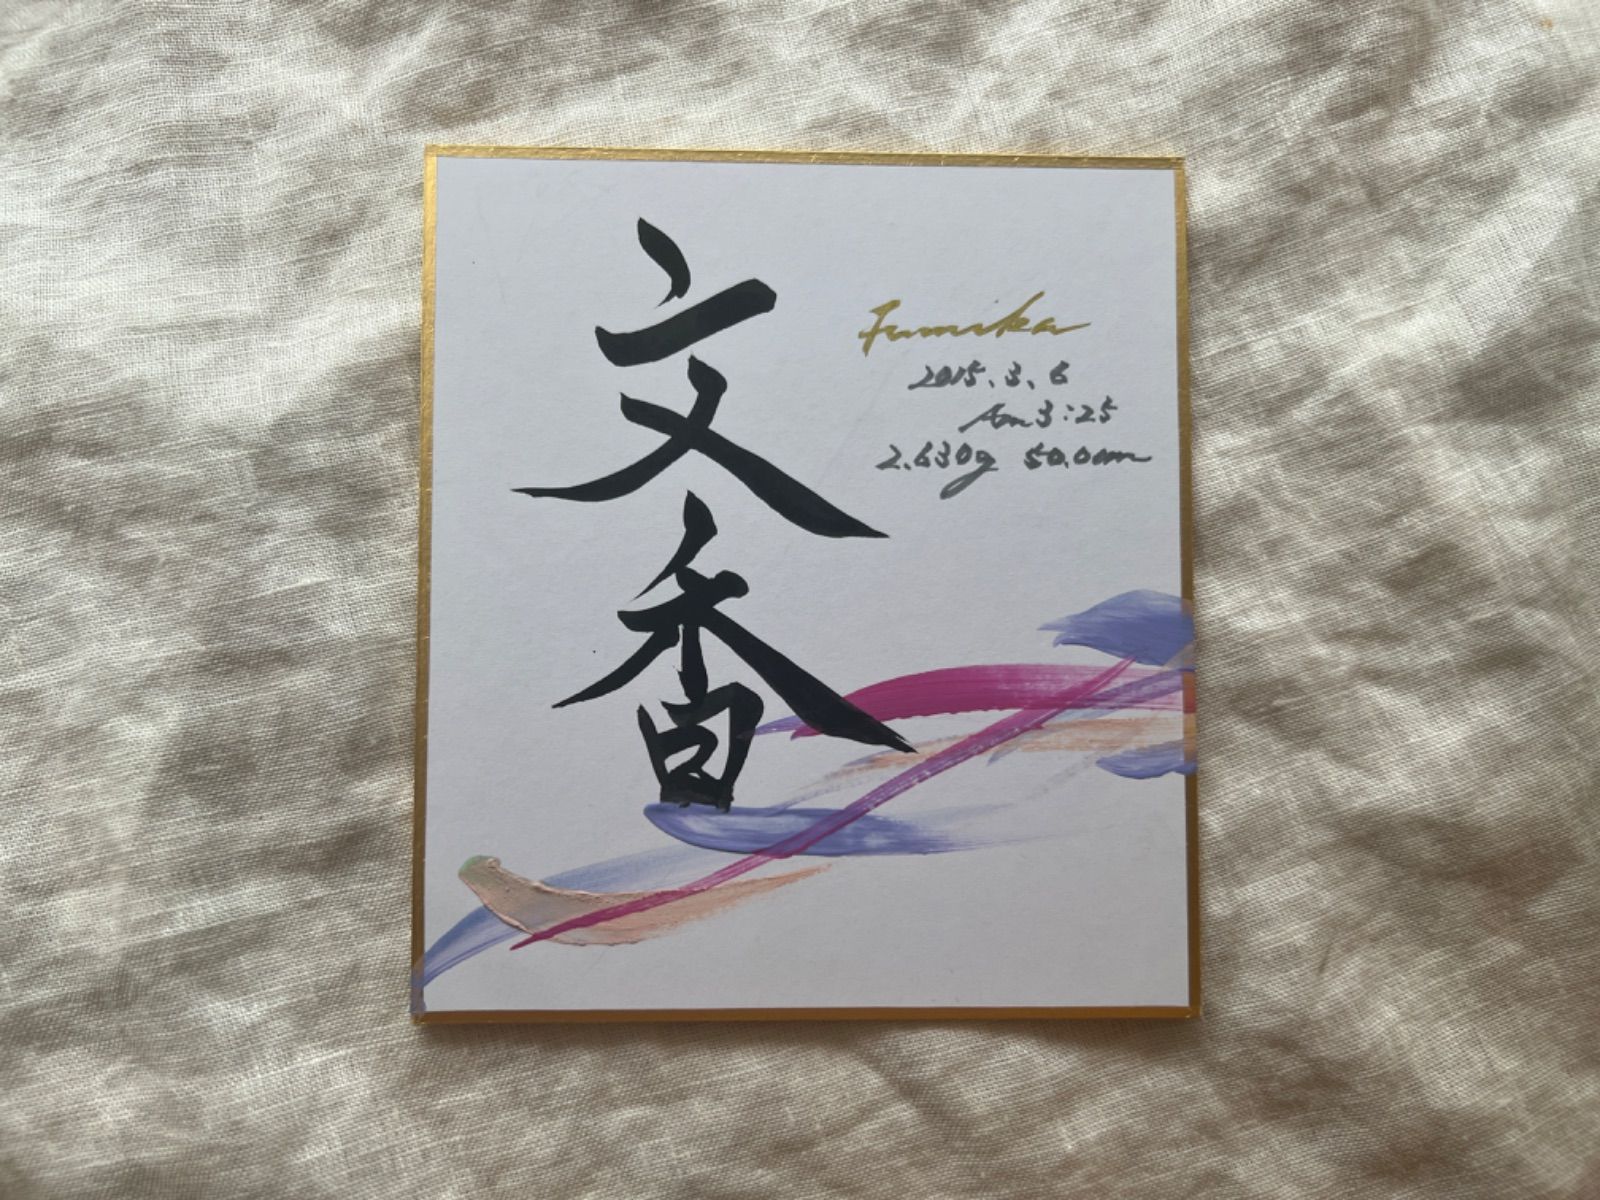 文香
Fumika
2015.3.6
Am 3:25
2.630g 50.0cm